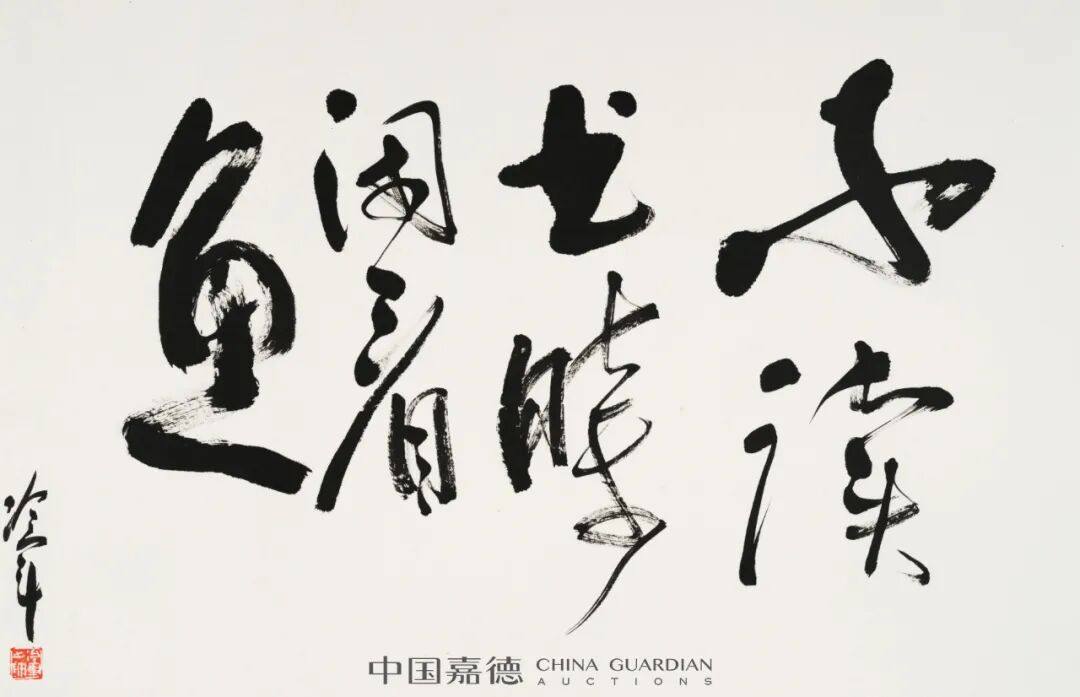 不读
书時
闲看
鱼
冷军
中国嘉德 CHINA GUARDIAN
AUCTIONS